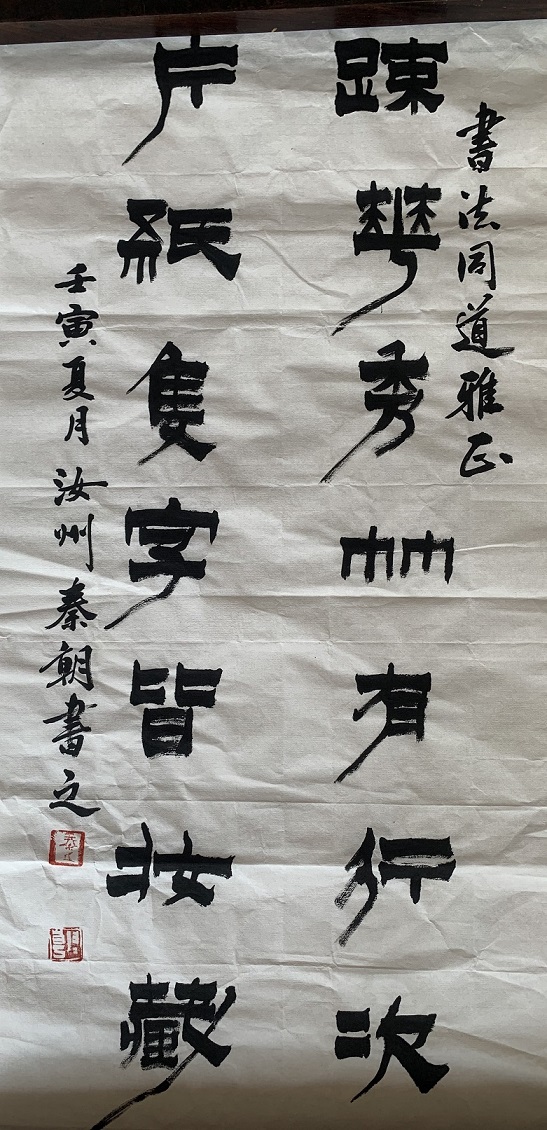 書法同道雅正
踈華秀竹有行次
片紙隻字皆妝藏
壬寅夏月汝州秦朝書之